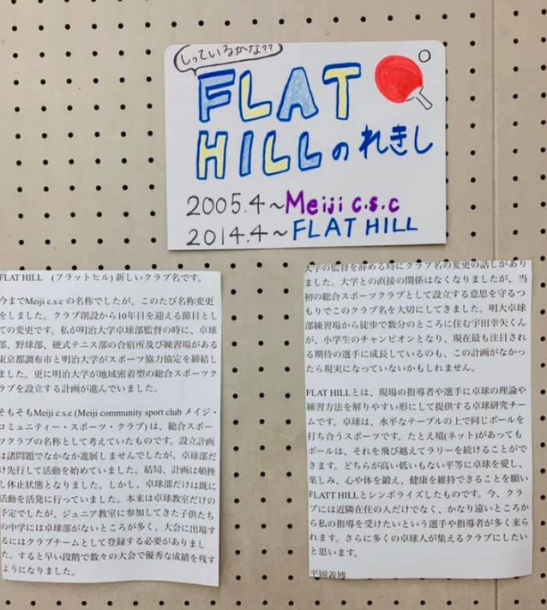 しっているかな??
FLAT
HILLのれきし
2005.4~Meiji c.s.c
2014.4~FLAT HILL
FLAT HILL (フラットヒル) 新しいクラブ名です。
今までMeiji c.s.c の名称でしたが、このたび名称変更
をしました。クラブ創設から10年目を迎える節目とし
ての変更です。私が明治大学卓球部監督の時に、卓球
部、野球部、硬式テニス部の合宿所及び練習場がある
東京都調布市と明治大学がスポーツ協力協定を締結し
ました。更に明治大学が地域密着型の総合スポーツク
ラブを設立する計画が進んでいました。
そもそもMeiji c.s.c (Meiji community sport club メイジ・
コミュニティー・スポーツ・クラブ) は、総合スポー
ツクラブの名称として考えていたものです。設立計画
は諸問題でなかなか進展しませんでしたが、卓球部だ
け先行して活動を始めていました。結局、計画は頓挫
し休止状態となりました。しかし、卓球部だけは既に
活動を活発に行っていました。本来は卓球教室だけの
予定でしたが、ジュニア教室に参加してきた子供たち
の中学には卓球部がないところが多く、大会に出場す
るにはクラブチームとして登録する必要がありまし
た。すると早い段階で数々の大会で優秀な成績を残す
ようになりました。
大学の監督を辞める時にクラブ名の変更の話しがあり
ました。大学との直接の関係はなくなりましたが、当
初の総合スポーツクラブとして設立する意思を守るつ
もりでこのクラブ名を大切にしてきました。明大卓球
部練習場から徒歩で数分のところに住む宇田幸矢くん
が、小学生のチャンピオンとなり、現在最も注目され
る期待の選手に成長しているのも、この計画がなかっ
たら現実になっていないかもしれません。
FLAT HILLとは、現場の指導者や選手に卓球の理論や
練習方法を解りやすい形にして提供する卓球研究チー
ムです。卓球は、水平なテーブルの上で同じボールを
打ち合うスポーツです。たとえ境(ネット)があっても
ボールは、それを飛び越えてラリーを続けることがで
きます。どちらが高い低いもない平等に卓球を愛し、
楽しみ、心や体を鍛え、健康を維持できることを願い
FLATT HILLとシンボライズしたものです。今、クラ
ブには近隣在住の人だけでなく、かなり遠いところか
ら私の指導を受けたいという選手や指導者が多く来ら
れます。さらに多くの卓球人が集えるクラブにしたい
と思います。
平岡義博